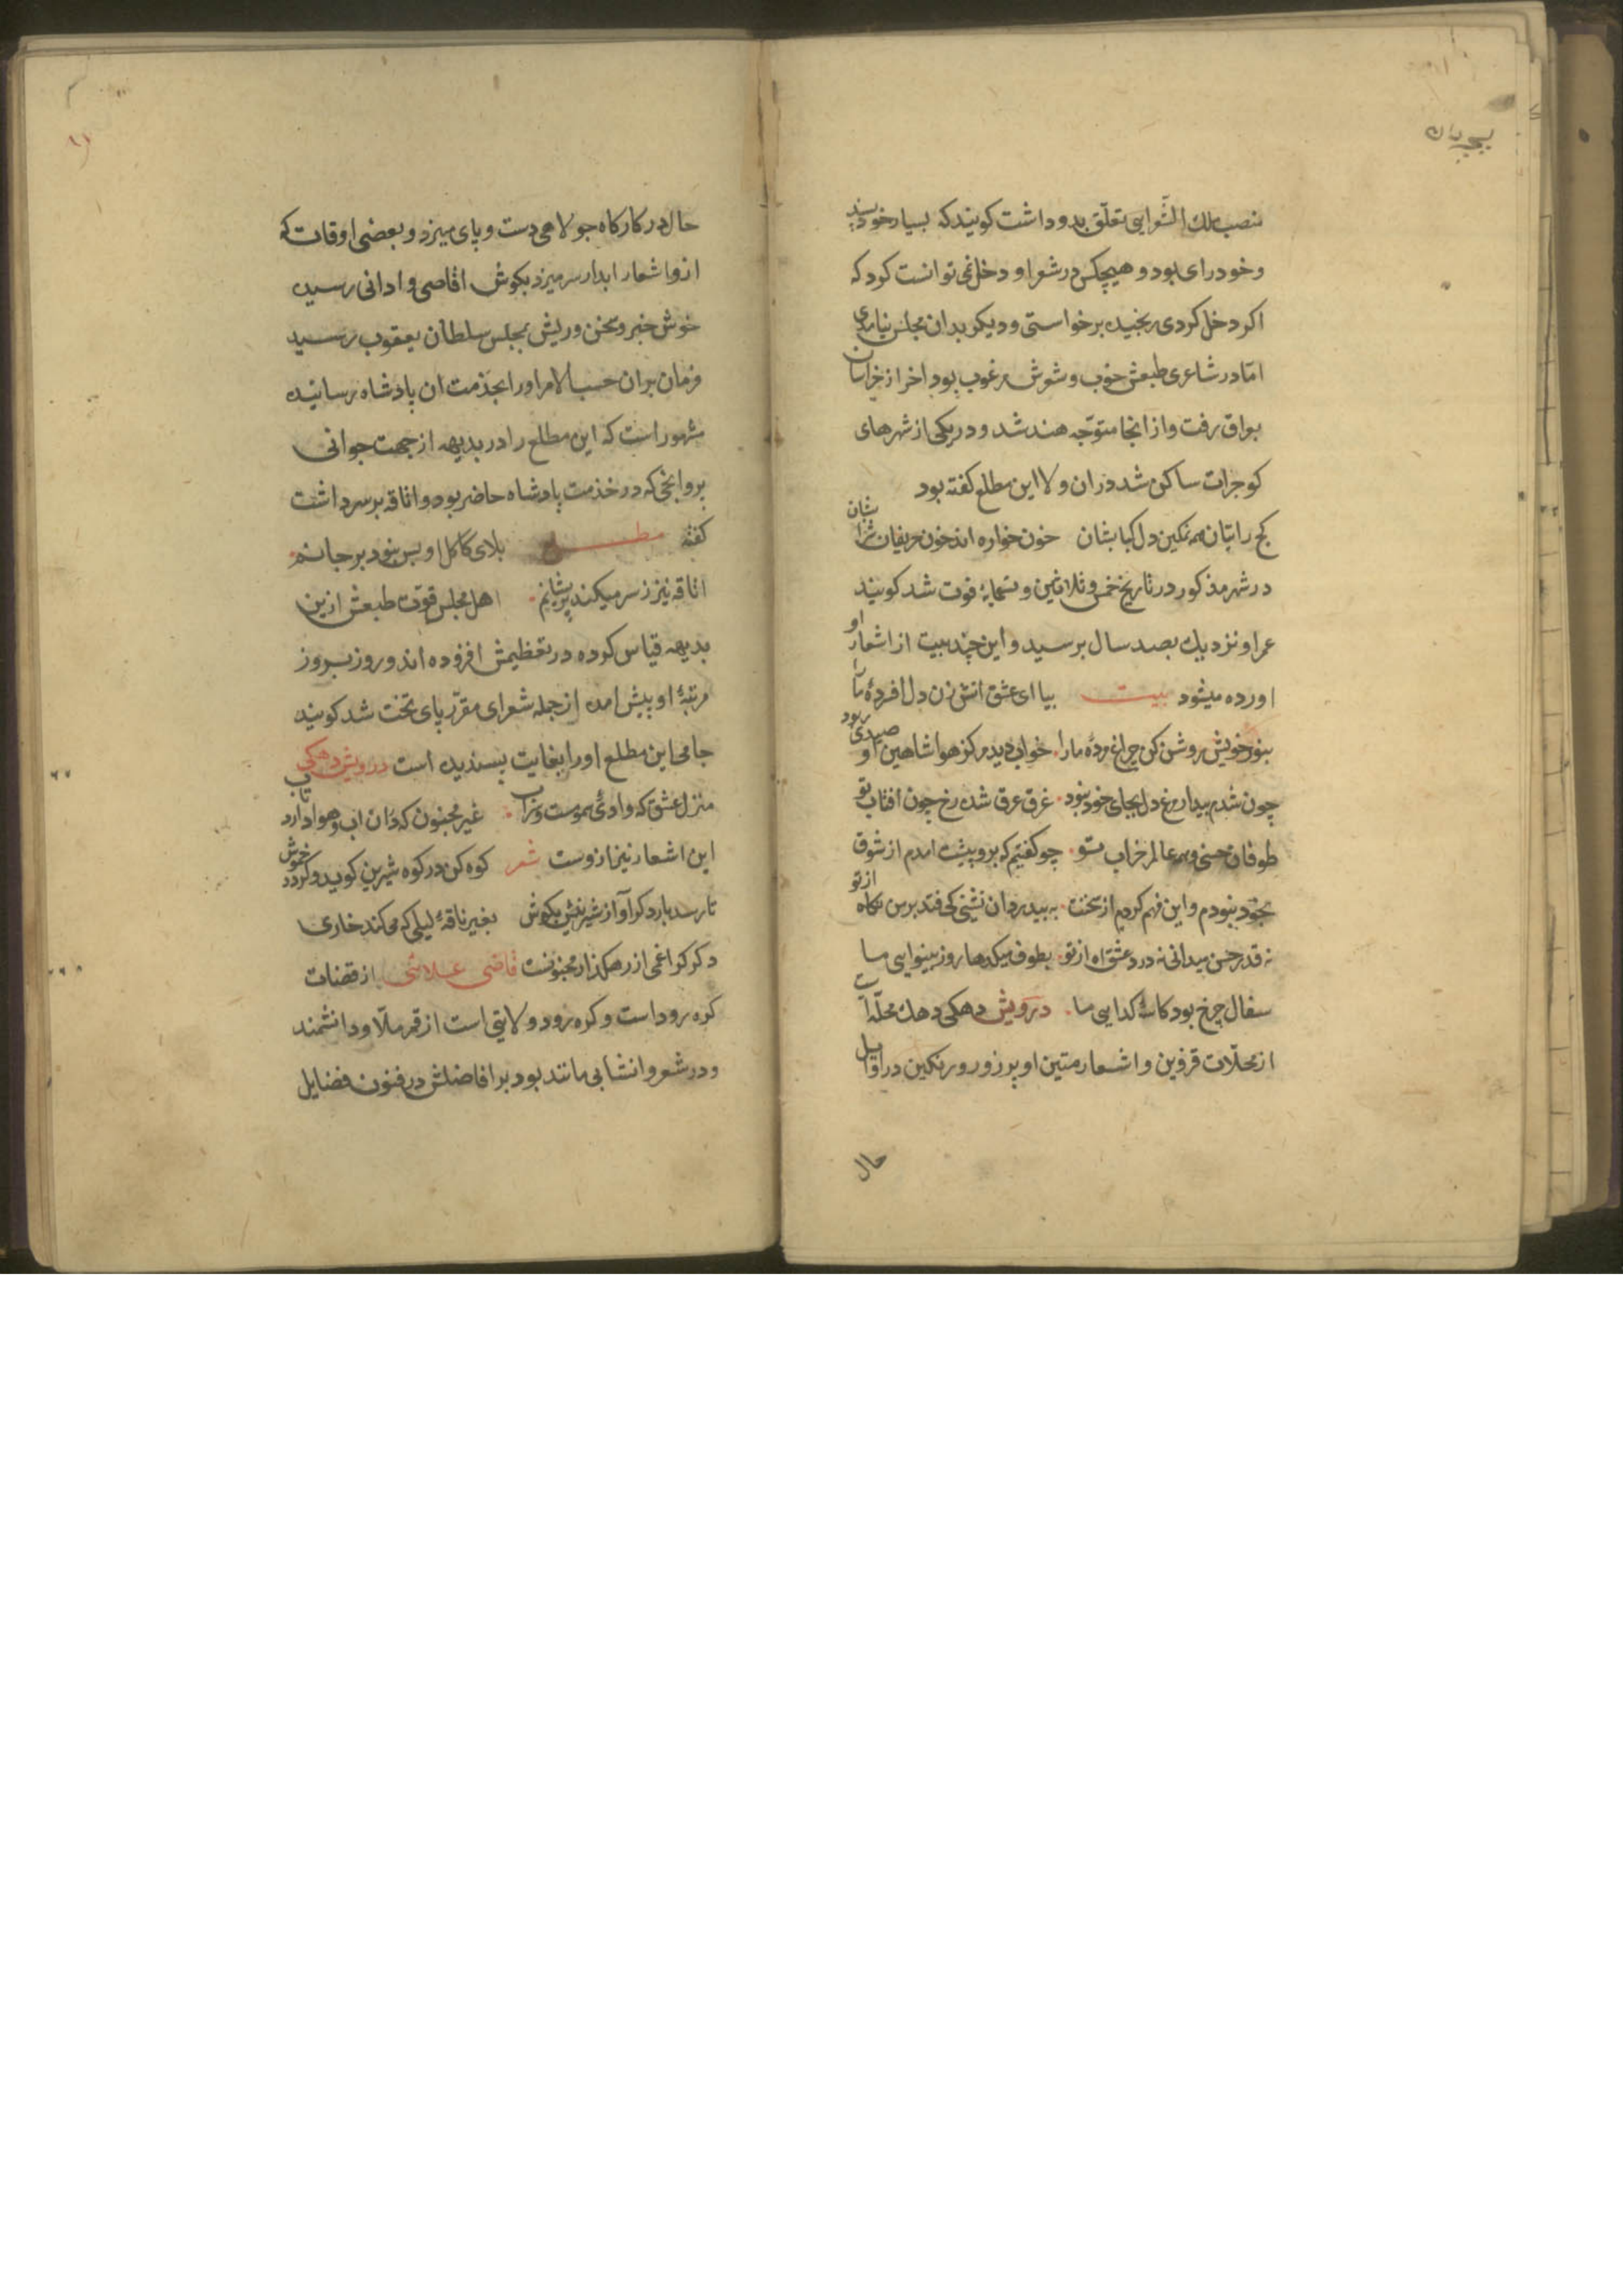 منصب ملك الشّعرایی تعلّق بدو داشت کویند که بسیار خود پسند
و خود رای بود و هیچکس در شعر او دخل نمی توانست کرد که
اکر دخل کردی رنجیده برخواستی و دیکر بدان مجلس نیامدی
امّا در شاعری طبعش خوب و شعرش مرغوب بود اخر از خراسان
بعراق رفت و از انجا متوجّه هند شد و در یکی از شهرهای
کوجرات ساکن شد دران ولا این مطلع کفته بود
کج راتبان همه نمکین دل کبابشان خون خواره اند خون حریفان شرابشان
در شهر مذکور در تاریخ خمس و ثلاثین و تسمایۀ فوت شد کویند
عمر او نزدیك بصد سال برسید و این چند بیت از اشعار او
اورده میشود بیت بیا ای عشق اتش زن دل افسردۀ ما را
بنور خویش روشن کن چراغ مردۀ ما را خواب دیدم کز هوا شاهین او صیدی ربود
چون شدم بیدار مرغ دل بجای خود نبود غرق عرق شده رخ چون افتاب تو
طوفان حسنی و همه عالم خراب تو چو کفتیم که برو پیشت امدم از شوق
بخود نبودم و این فهم کردم از سخنت به بیدردان نشینی کی فتد بر من نکاه از تو
نه قدر حسن میدانی نه درد عشق اه از تو بطوف میکدها روز بینوایی ما
سفال چرخ بود کاسۀ کدایی ما درویش دهکی دهك محلّه است
از محلّات قزوین و اشعار متین او پر زور و رنکین در اوایل
حال
حال در کارکاه جولاهی دست و پای میزد و بعضی اوقات که
ازو اشعار ابدار سر میزد بکوش اقاصی و ادانی رسیده
خوش خبر و سخن وریش بمجلس سلطان یعقوب رسید
فرمان بران حسب الامر او را بخدمت ان پادشاه رسانیده
مشهور است که این مطلع را در بدیهه از جهت جوانی
پروانجی که در خدمت پادشاه حاضر بود و اتاقه بر سر داشت
کفته مطلع بلای کاکل او بس نبود بر جانم
اتاقه نیز ز سر میکند پریشانم اهل مجلس قوّت طبعش ازین
بدیهه قیاس کرده در تعظیمش افزوده اند و روز بروز
مرتبۀ او پیش امده از جمله شعرای مقرّر پای تخت شد کویند
جامی این مطلع او را بغایت پسندیده است درویش دهکی
منزل عشق که وادئ سموست و سراب غیر مجنون که دران اب و هوا دارد تاب
این اشعار نیز ازوست شعر کوه کن در کوه شیرین کوید و کردد خموش
تا رسد بار دکر آواز شیرینش بکوش بغیر ناقۀ لیلی که میکند خاری
دکر کرا غمی از رهکذار مجنونست قاضی علائی از قضات
کره رود است و کره رود ولایتی است از قم ملّا و دانشمند
و در شعر و انشا بی مانند بود بر افاضلش در فنون فضایل